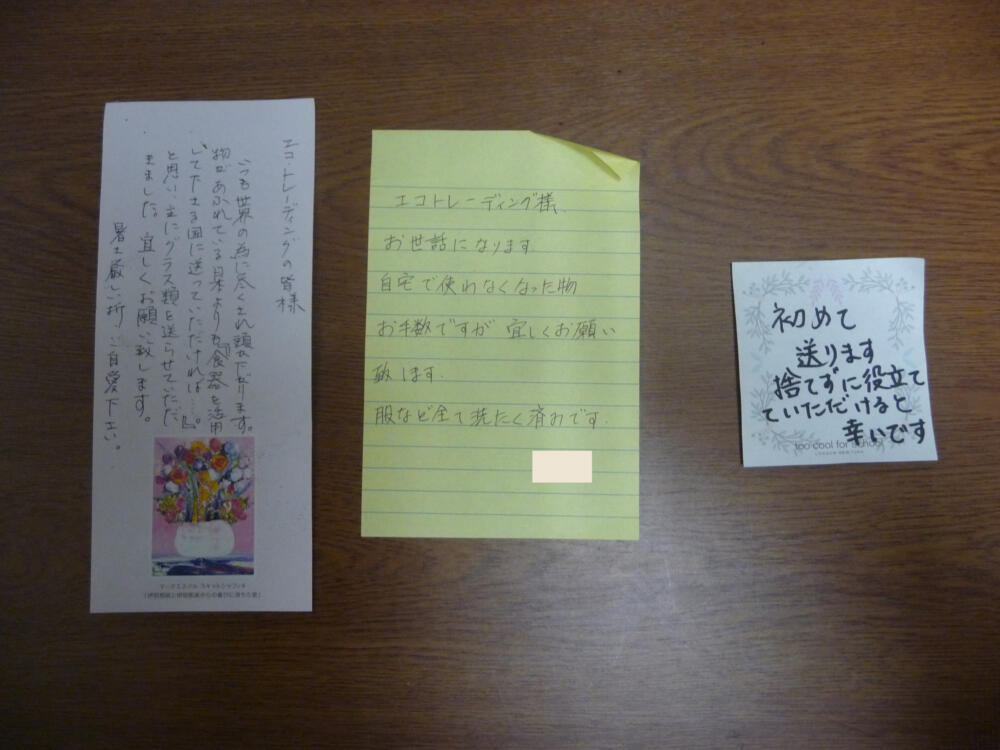 エコ・トレーディングの皆様
いつも世界の為に尽くされ頭が下がります。
物があふれている日本よりも『食器を活用
して下さる国に送っていただければ…。』
と思い、主にグラス類を送らせていただ
きました。宜しくお願い致します。
暑さ厳しい折、ご自愛下さい。
エコトレーディング様
お世話になります
自宅で使わなくなった物
お手数ですが 宜しくお願い
致します.
服など全て洗たく済みです.
初めて
送ります
捨てずに役立て
ていただけると
幸いです
too cool for school
LONDON NEW YORK